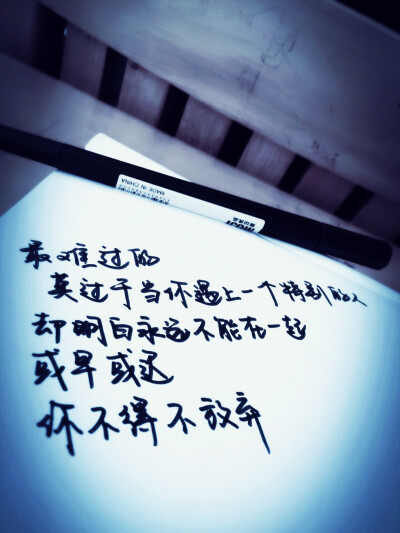 MADE IN CHINA
最难过的
莫过于当你遇上一个特别的人
却明白永远不能在一起
或早或迟
你不得不放弃